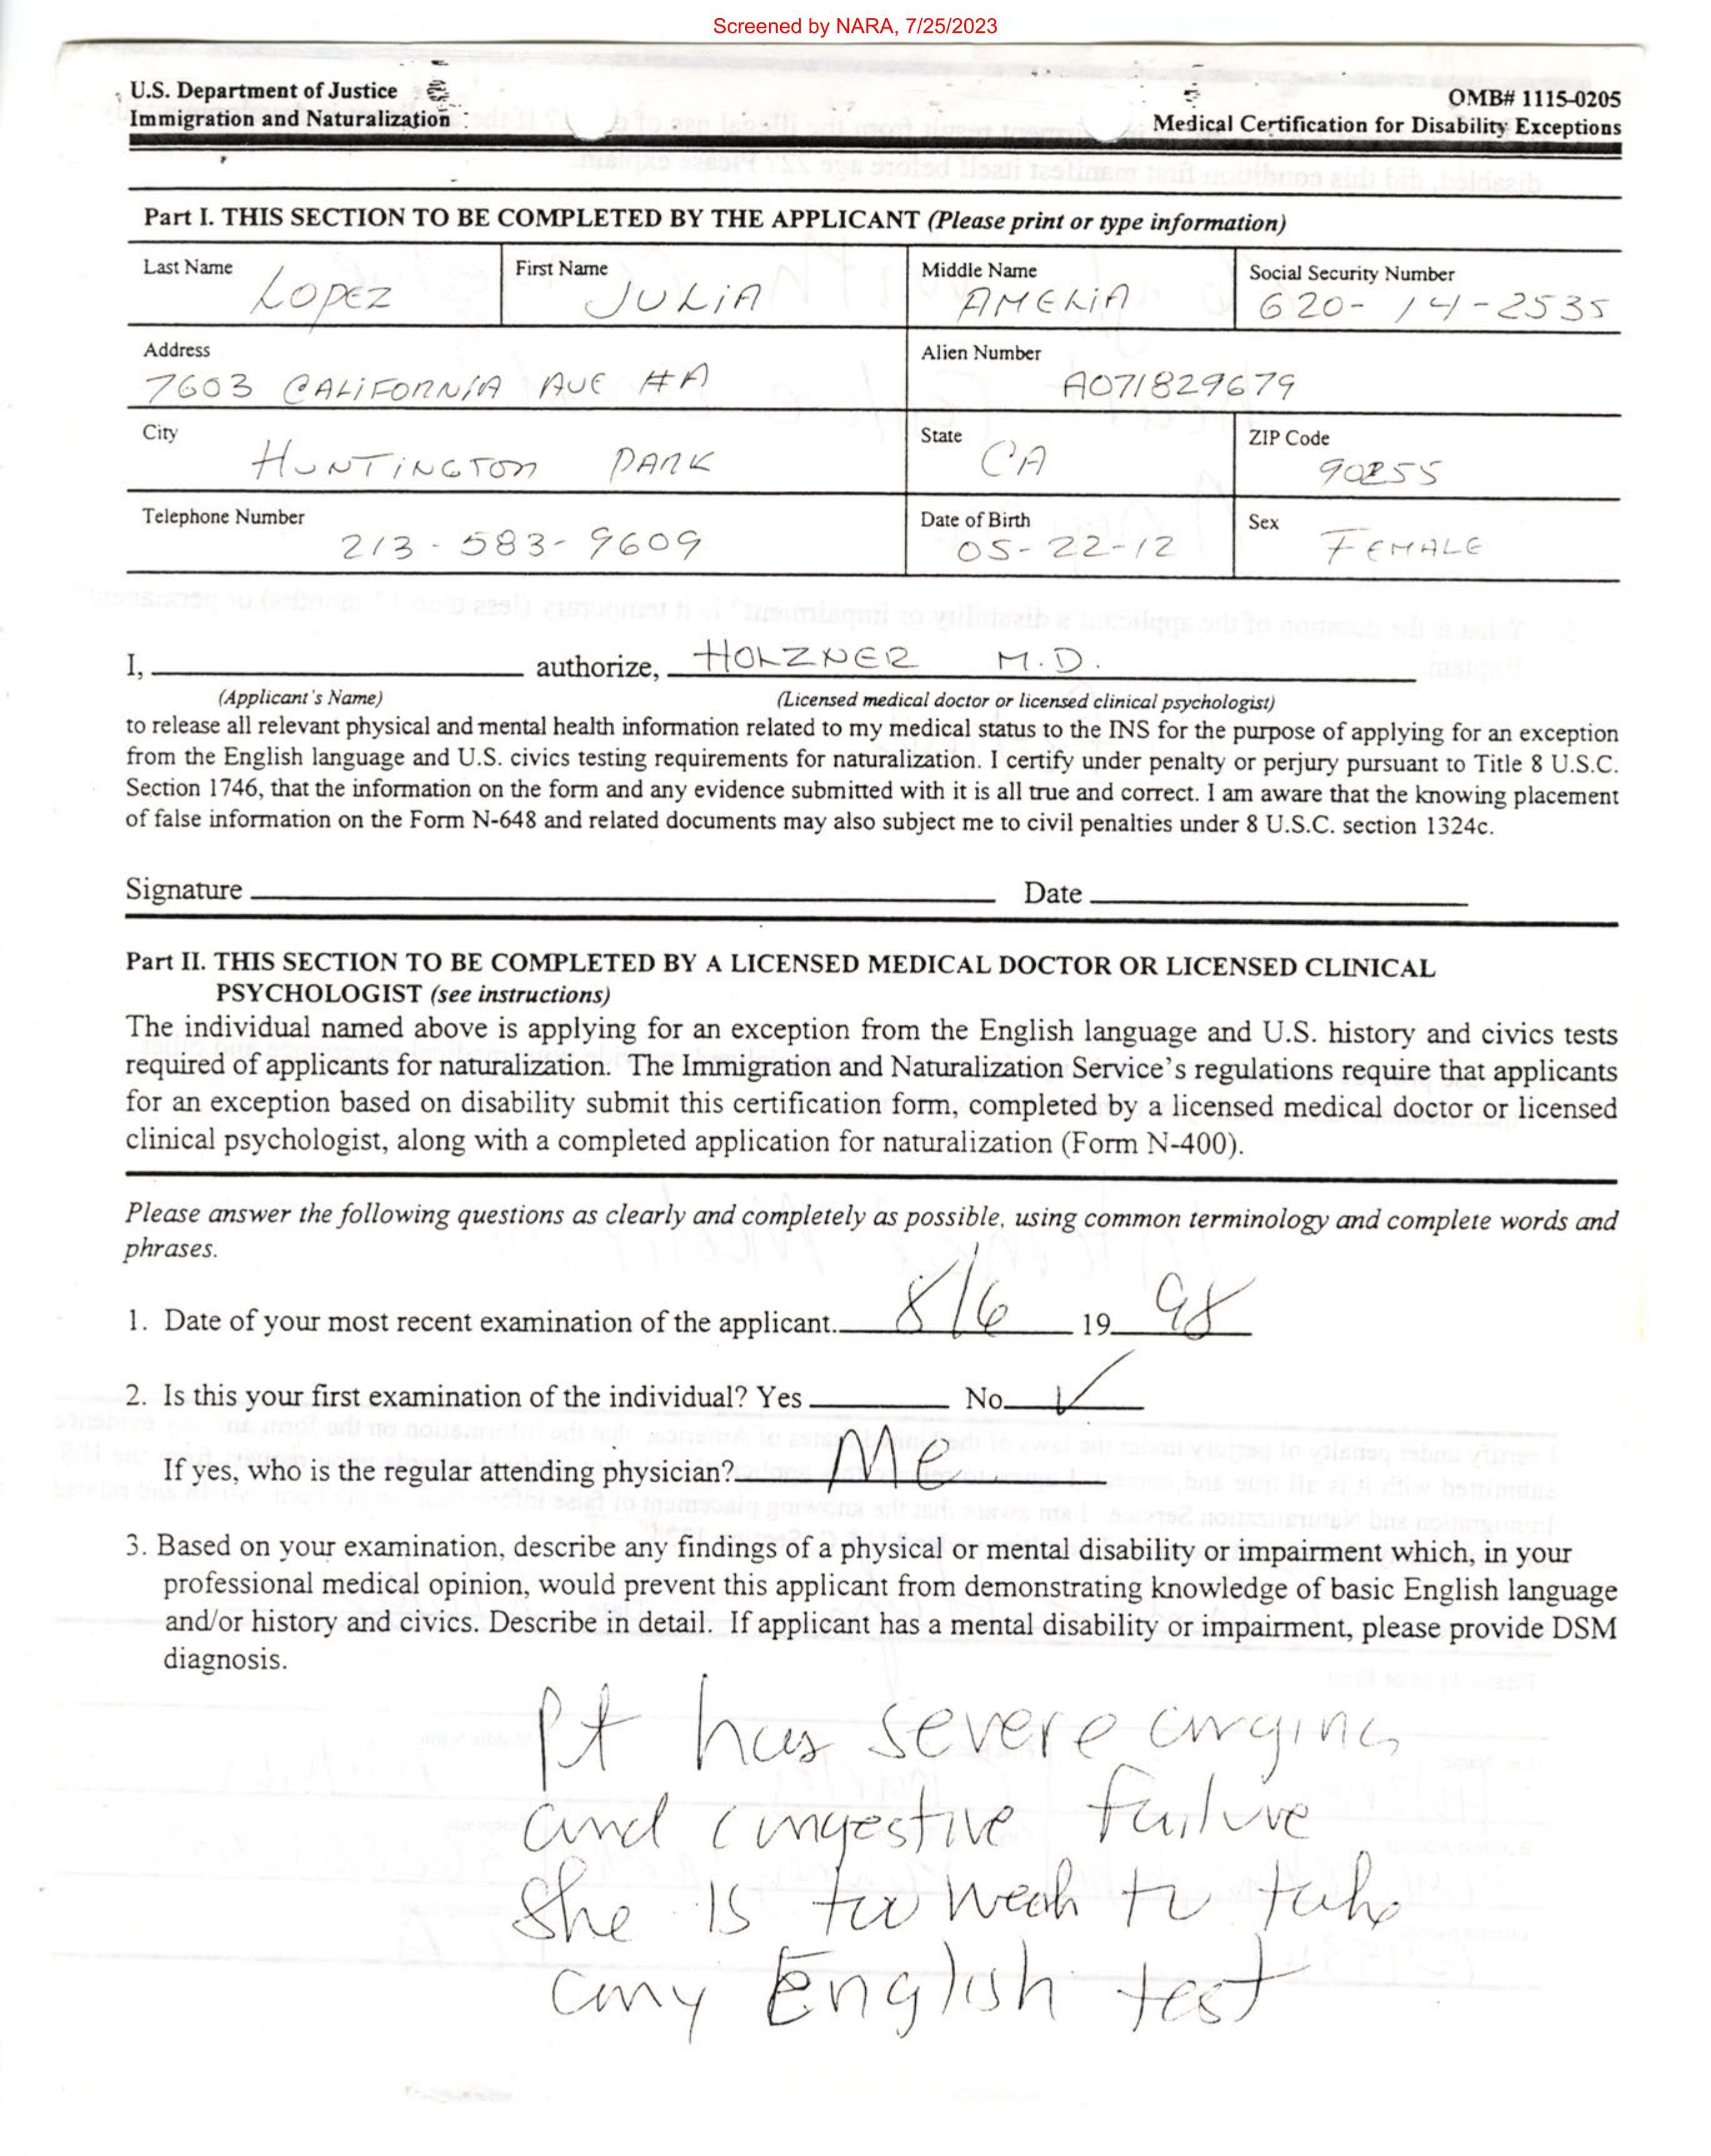 Screened by NARA, 7/25/2023
U.S. Department of Justice
Immigration and Naturalization
OMB# 1115-0205
Medical Certification for Disability Exceptions
Part I. THIS SECTION TO BE COMPLETED BY THE APPLICANT (Please print or type information)
Last Name LOPEZ First Name JULIA Middle Name AMELIA Social Security Number 620-14-2535
Address 7603 CALIFORNIA AVE #A Alien Number A071829679
City HUNTINGTON PARK State CA ZIP Code 90255
Telephone Number 213-583-9609 Date of Birth 05-22-12 Sex FEMALE
I, authorize, HOLZNER M.D.
(Applicant's Name) (Licensed medical doctor or licensed clinical psychologist)
to release all relevant physical and mental health information related to my medical status to the INS for the purpose of applying for an exception
from the English language and U.S. civics testing requirements for naturalization. I certify under penalty or perjury pursuant to Title 8 U.S.C.
Section 1746, that the information on the form and any evidence submitted with it is all true and correct. I am aware that the knowing placement
of false information on the Form N-648 and related documents may also subject me to civil penalties under 8 U.S.C. section 1324c.
Signature Date
Part II. THIS SECTION TO BE COMPLETED BY A LICENSED MEDICAL DOCTOR OR LICENSED CLINICAL
PSYCHOLOGIST (see instructions)
The individual named above is applying for an exception from the English language and U.S. history and civics tests
required of applicants for naturalization. The Immigration and Naturalization Service's regulations require that applicants
for an exception based on disability submit this certification form, completed by a licensed medical doctor or licensed
clinical psychologist, along with a completed application for naturalization (Form N-400).
Please answer the following questions as clearly and completely as possible, using common terminology and complete words and
phrases.
1. Date of your most recent examination of the applicant. 8/6 19 98
2. Is this your first examination of the individual? Yes No ✓
If yes, who is the regular attending physician? Me
3. Based on your examination, describe any findings of a physical or mental disability or impairment which, in your
professional medical opinion, would prevent this applicant from demonstrating knowledge of basic English language
and/or history and civics. Describe in detail. If applicant has a mental disability or impairment, please provide DSM
diagnosis.
Pt has severe angina
and congestive failure
She is too weak to take
any English test